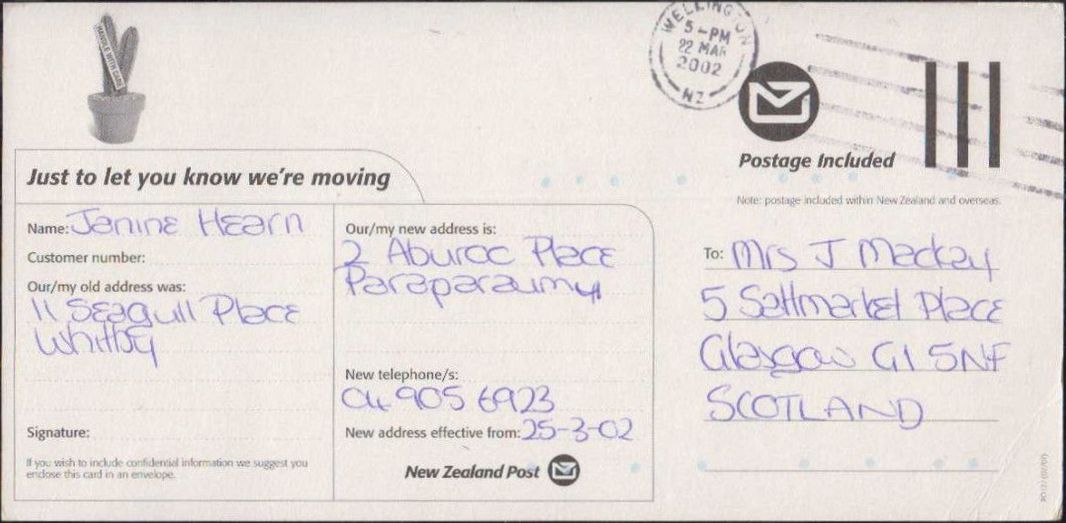 HANDLE WITH CARE
WELLINGTON
5-PM
22 MAR
2002
NZ
Postage Included
Note: postage included within New Zealand and overseas.
Just to let you know we're moving
Name: Janine Hearn
Customer number:
Our/my old address was:
11 Seagull Place
Whitby
Signature:
If you wish to include confidential information we suggest you
enclose this card in an envelope.
Our/my new address is:
2 Place
Paraparaumu
New telephone/s:
04 905 6923
New address effective from: 25-3-02
New Zealand Post
To: Mrs J Mackay
5 Saltmarket Place
Glasgow G1 5NF
SCOTLAND